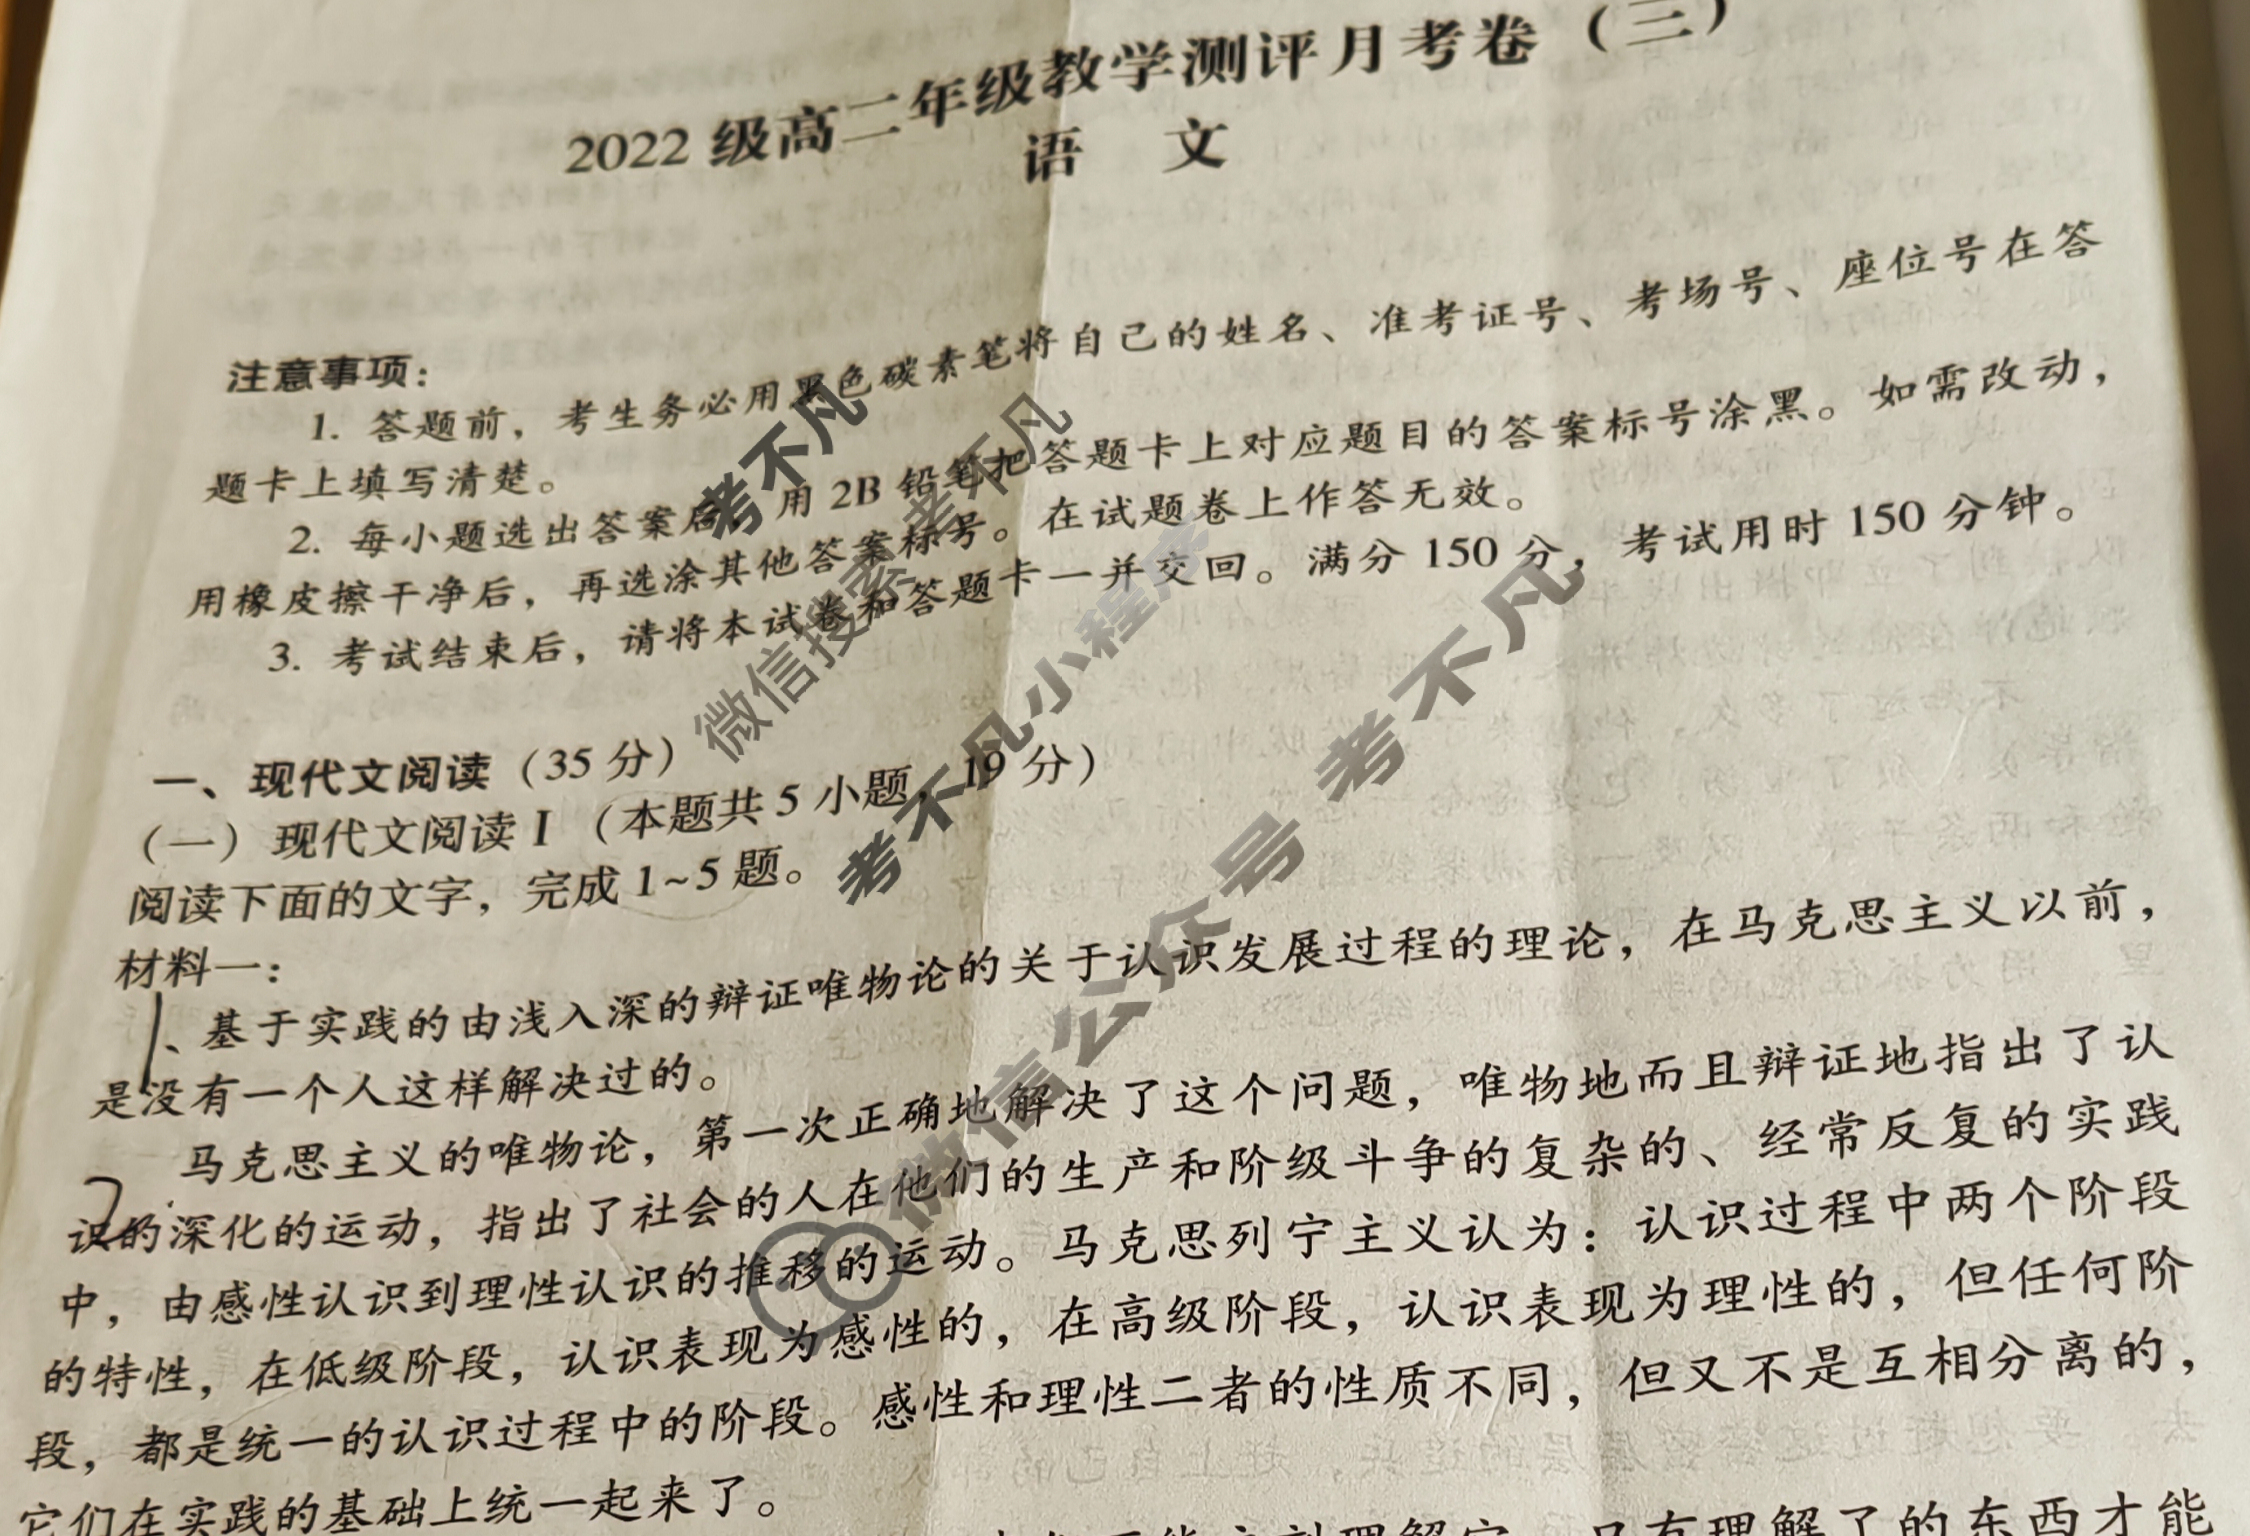 2022 级高二年级教学测评月考卷（三）
语 文
注意事项：
1. 答题前，考生务必用黑色碳素笔将自己的姓名、准考证号、考场号、座位号在答
题卡上填写清楚。
2. 每小题选出答案后，用 2B 铅笔把答题卡上对应题目的答案标号涂黑。如需改动，
用橡皮擦干净后，再选涂其他答案标号。在试题卷上作答无效。
3. 考试结束后，请将本试卷和答题卡一并交回。满分 150 分，考试用时 150 分钟。
一、现代文阅读（35 分）
（一）现代文阅读 I（本题共 5 小题，19 分）
阅读下面的文字，完成 1~5 题。
材料一：
1、基于实践的由浅入深的辩证唯物论的关于认识发展过程的理论，在马克思主义以前，
是没有一个人这样解决过的。
马克思主义的唯物论，第一次正确地解决了这个问题，唯物地而且辩证地指出了认
2.
识的深化的运动，指出了社会的人在他们的生产和阶级斗争的复杂的、经常反复的实践
中，由感性认识到理性认识的推移的运动。马克思列宁主义认为：认识过程中两个阶段
的特性，在低级阶段，认识表现为感性的，在高级阶段，认识表现为理性的，但任何阶
段，都是统一的认识过程中的阶段。感性和理性二者的性质不同，但又不是互相分离的，
它们在实践的基础上统一起来了。
理解它，只有理解了的东西才能
考不凡
微信搜索考不凡
考不凡小程序
微信公众号 考不凡